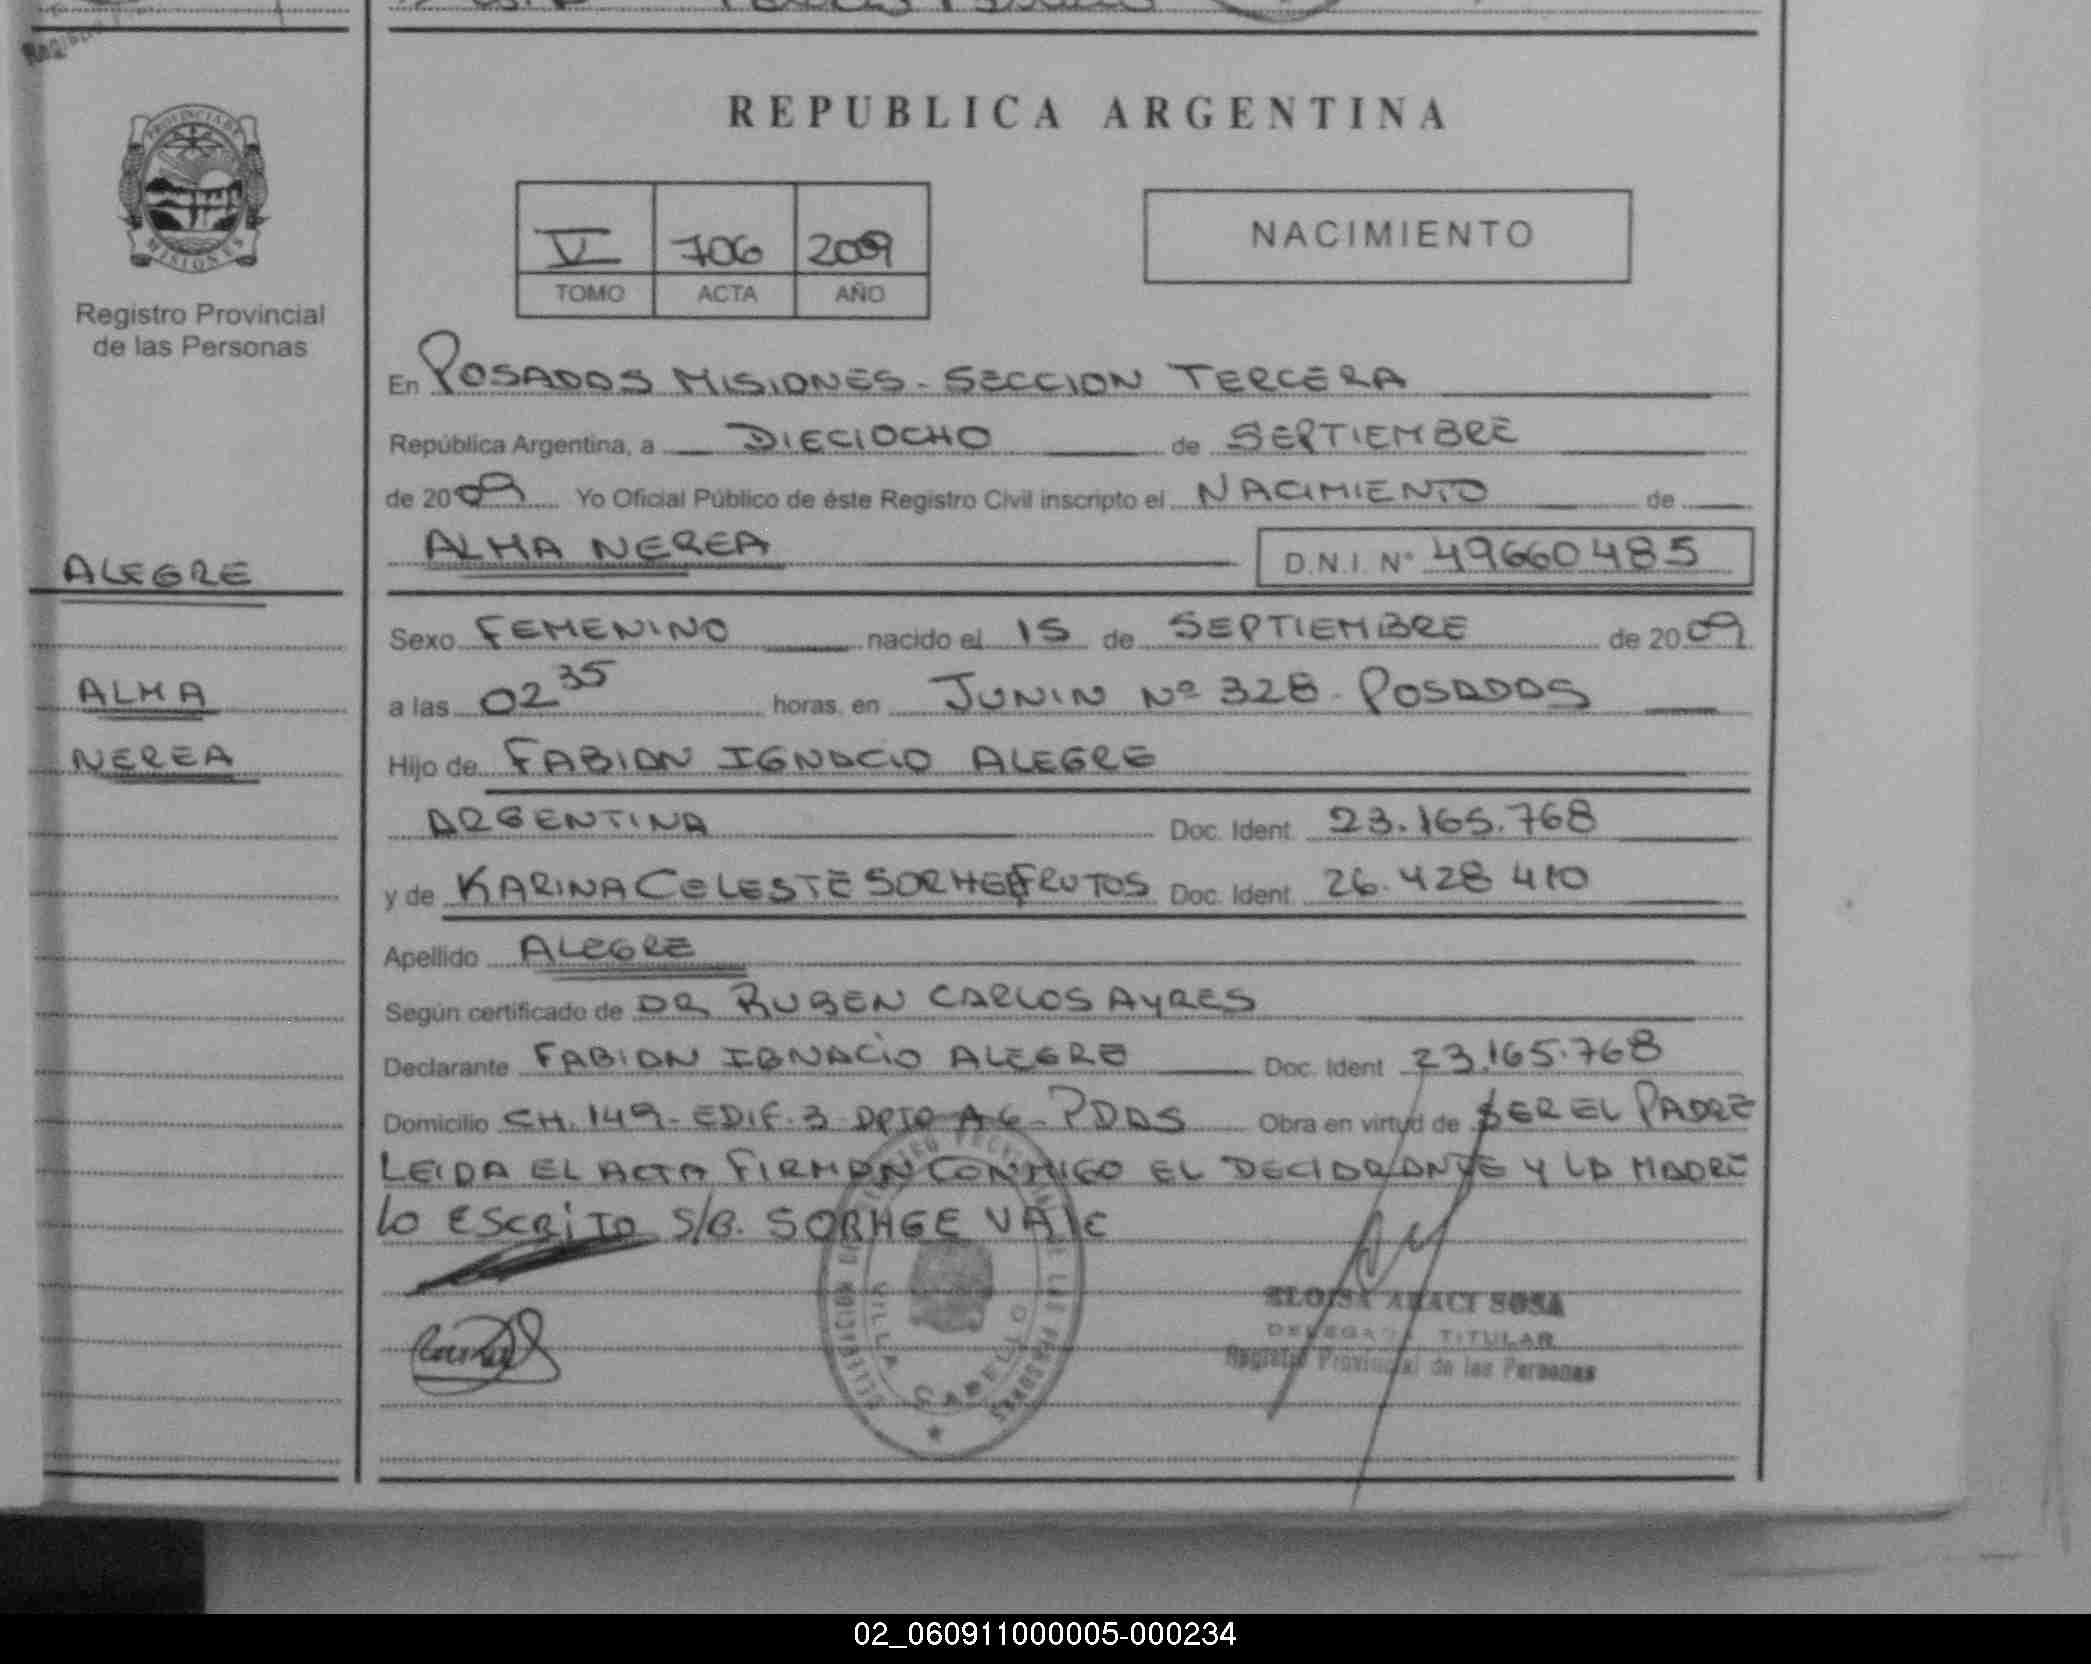 REPUBLICA ARGENTINA
PROVINCIA DE
MISIONES
Registro Provincial
de las Personas
V 706 2009
TOMO ACTA AÑO
NACIMIENTO
En POSADAS MISIONES - SECCION TERCERA
República Argentina, a DIECIOCHO de SEPTIEMBRE
de 2009 Yo Oficial Público de éste Registro Civil inscripto el NACIMIENTO de
ALMA NEREA D.N.I. N° 49660485
ALEGRE
ALMA
NEREA
Sexo FEMENINO nacido el 15 de SEPTIEMBRE de 2009
a las 02 35 horas, en JUNIN Nº 328 - POSADAS
Hijo de FABIAN IGNACIO ALEGRE
ARGENTINA Doc. Ident. 23.165.768
y de KARINA CELESTE FRUTOS Doc. Ident. 26.428 410
Apellido ALEGRE
Según certificado de DR RUBEN CARLOS AYRES
Declarante FABIAN IGNACIO ALEGRE Doc. Ident 23.165.768
Domicilio CH. 149 - EDIF. 3 DPTO A6 - PDAS Obra en virtud de SER EL PADRE
LEIDA EL ACTA FIRMAN CONMIGO EL DECLARANTE Y LA MADRE
LO ESCRITO S/B. SORHGE VALE
DELEGACION DEL REGISTRO PROVINCIAL DE LAS PERSONAS
VILLA CABELLO
ELOISA ARACI SOSA
DELEGADA TITULAR
Registro Provincial de las Personas
02_060911000005-000234